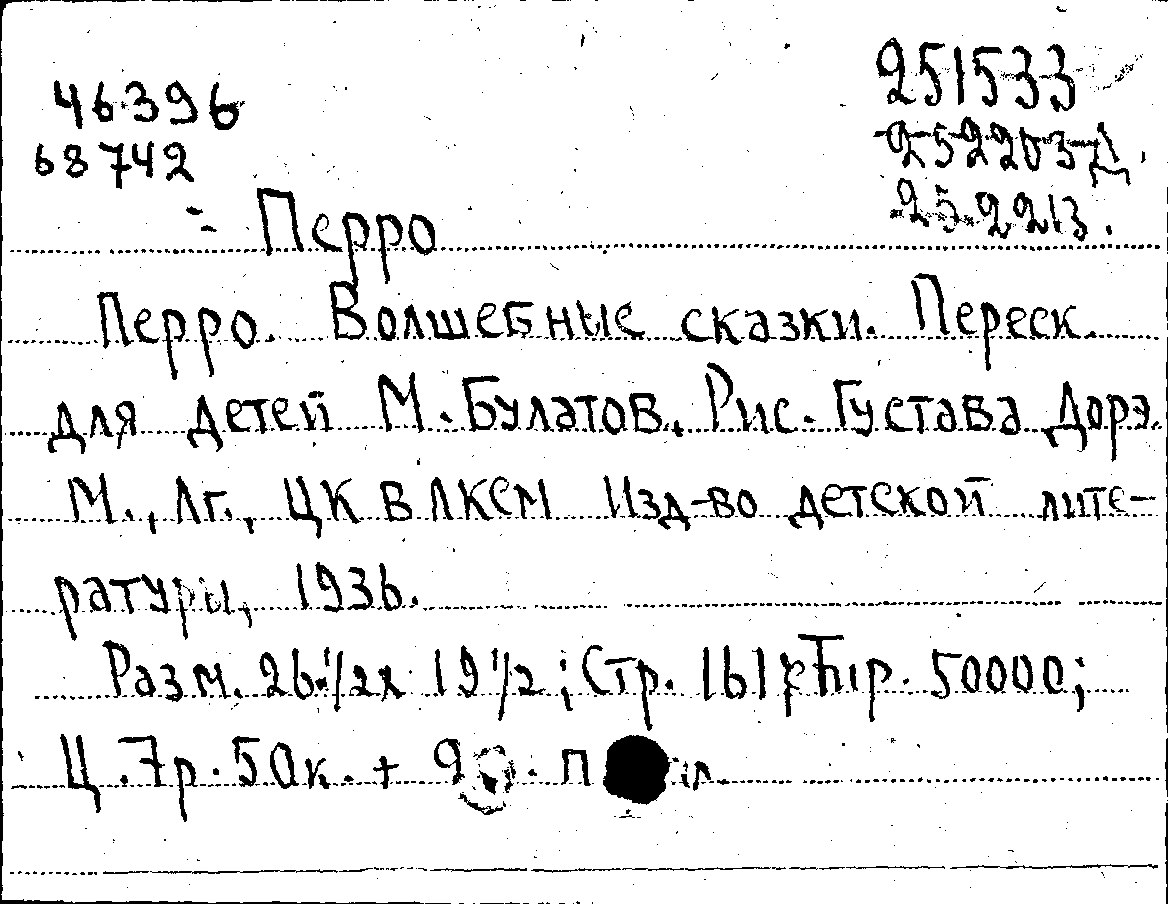 46396
251533
68742
252203Д.
252213.
Перро
Перро. Волшебные сказки. Переск.
для детей М. Булатов. Рис. Густава Дорэ.
М., Лг., ЦК ВЛКСМ Изд-во детской лите-
ратуры, 1936.
Разм. 26 1/2 х 19 1/2; Стр. 161; Тир. 50000;
Ц. 7р. 50к. +